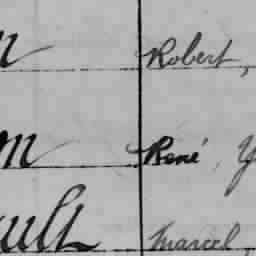 Robert,
René, Y
ault Marcel